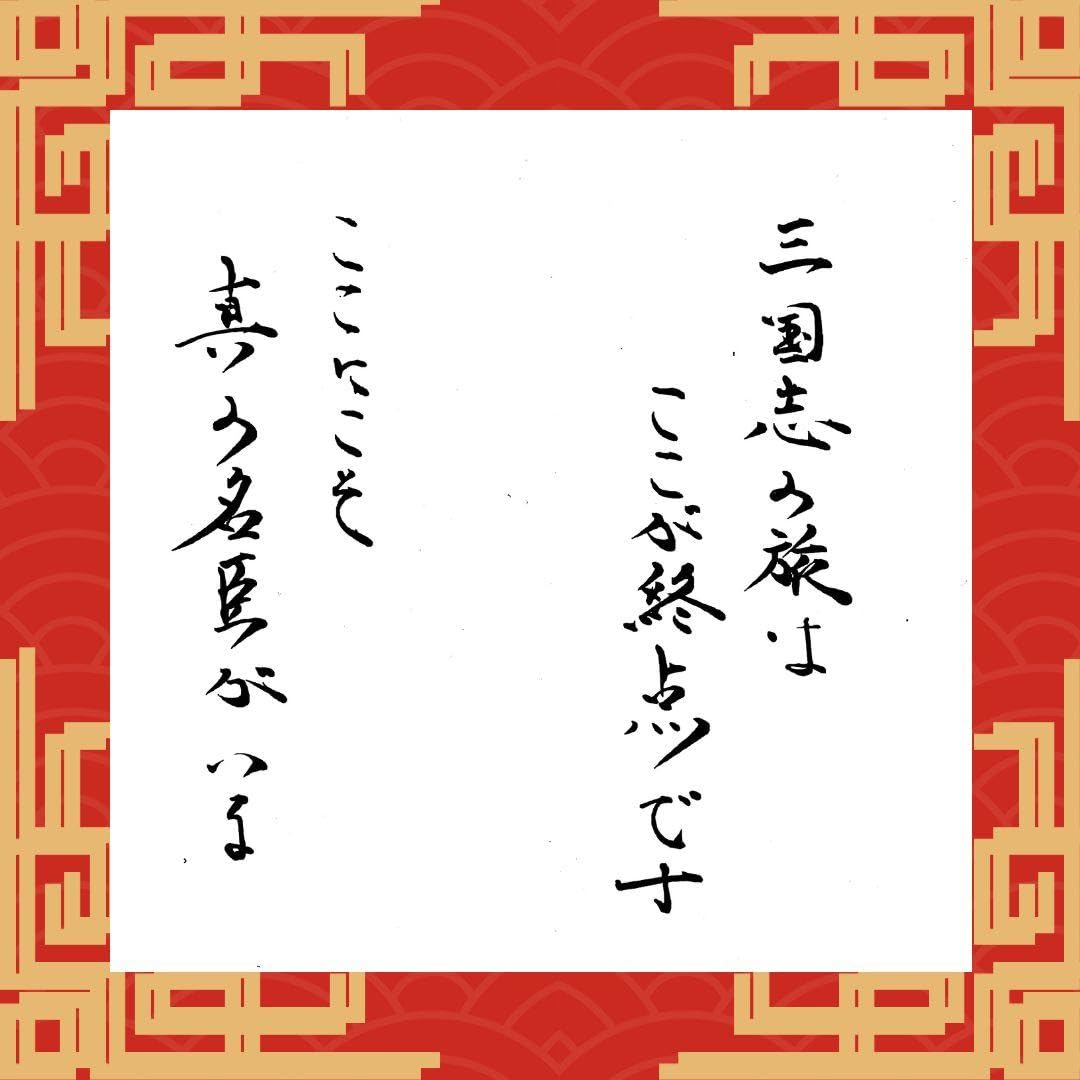 三国志の旅は
ここが終点です
ここにこそ
真の名臣がいる